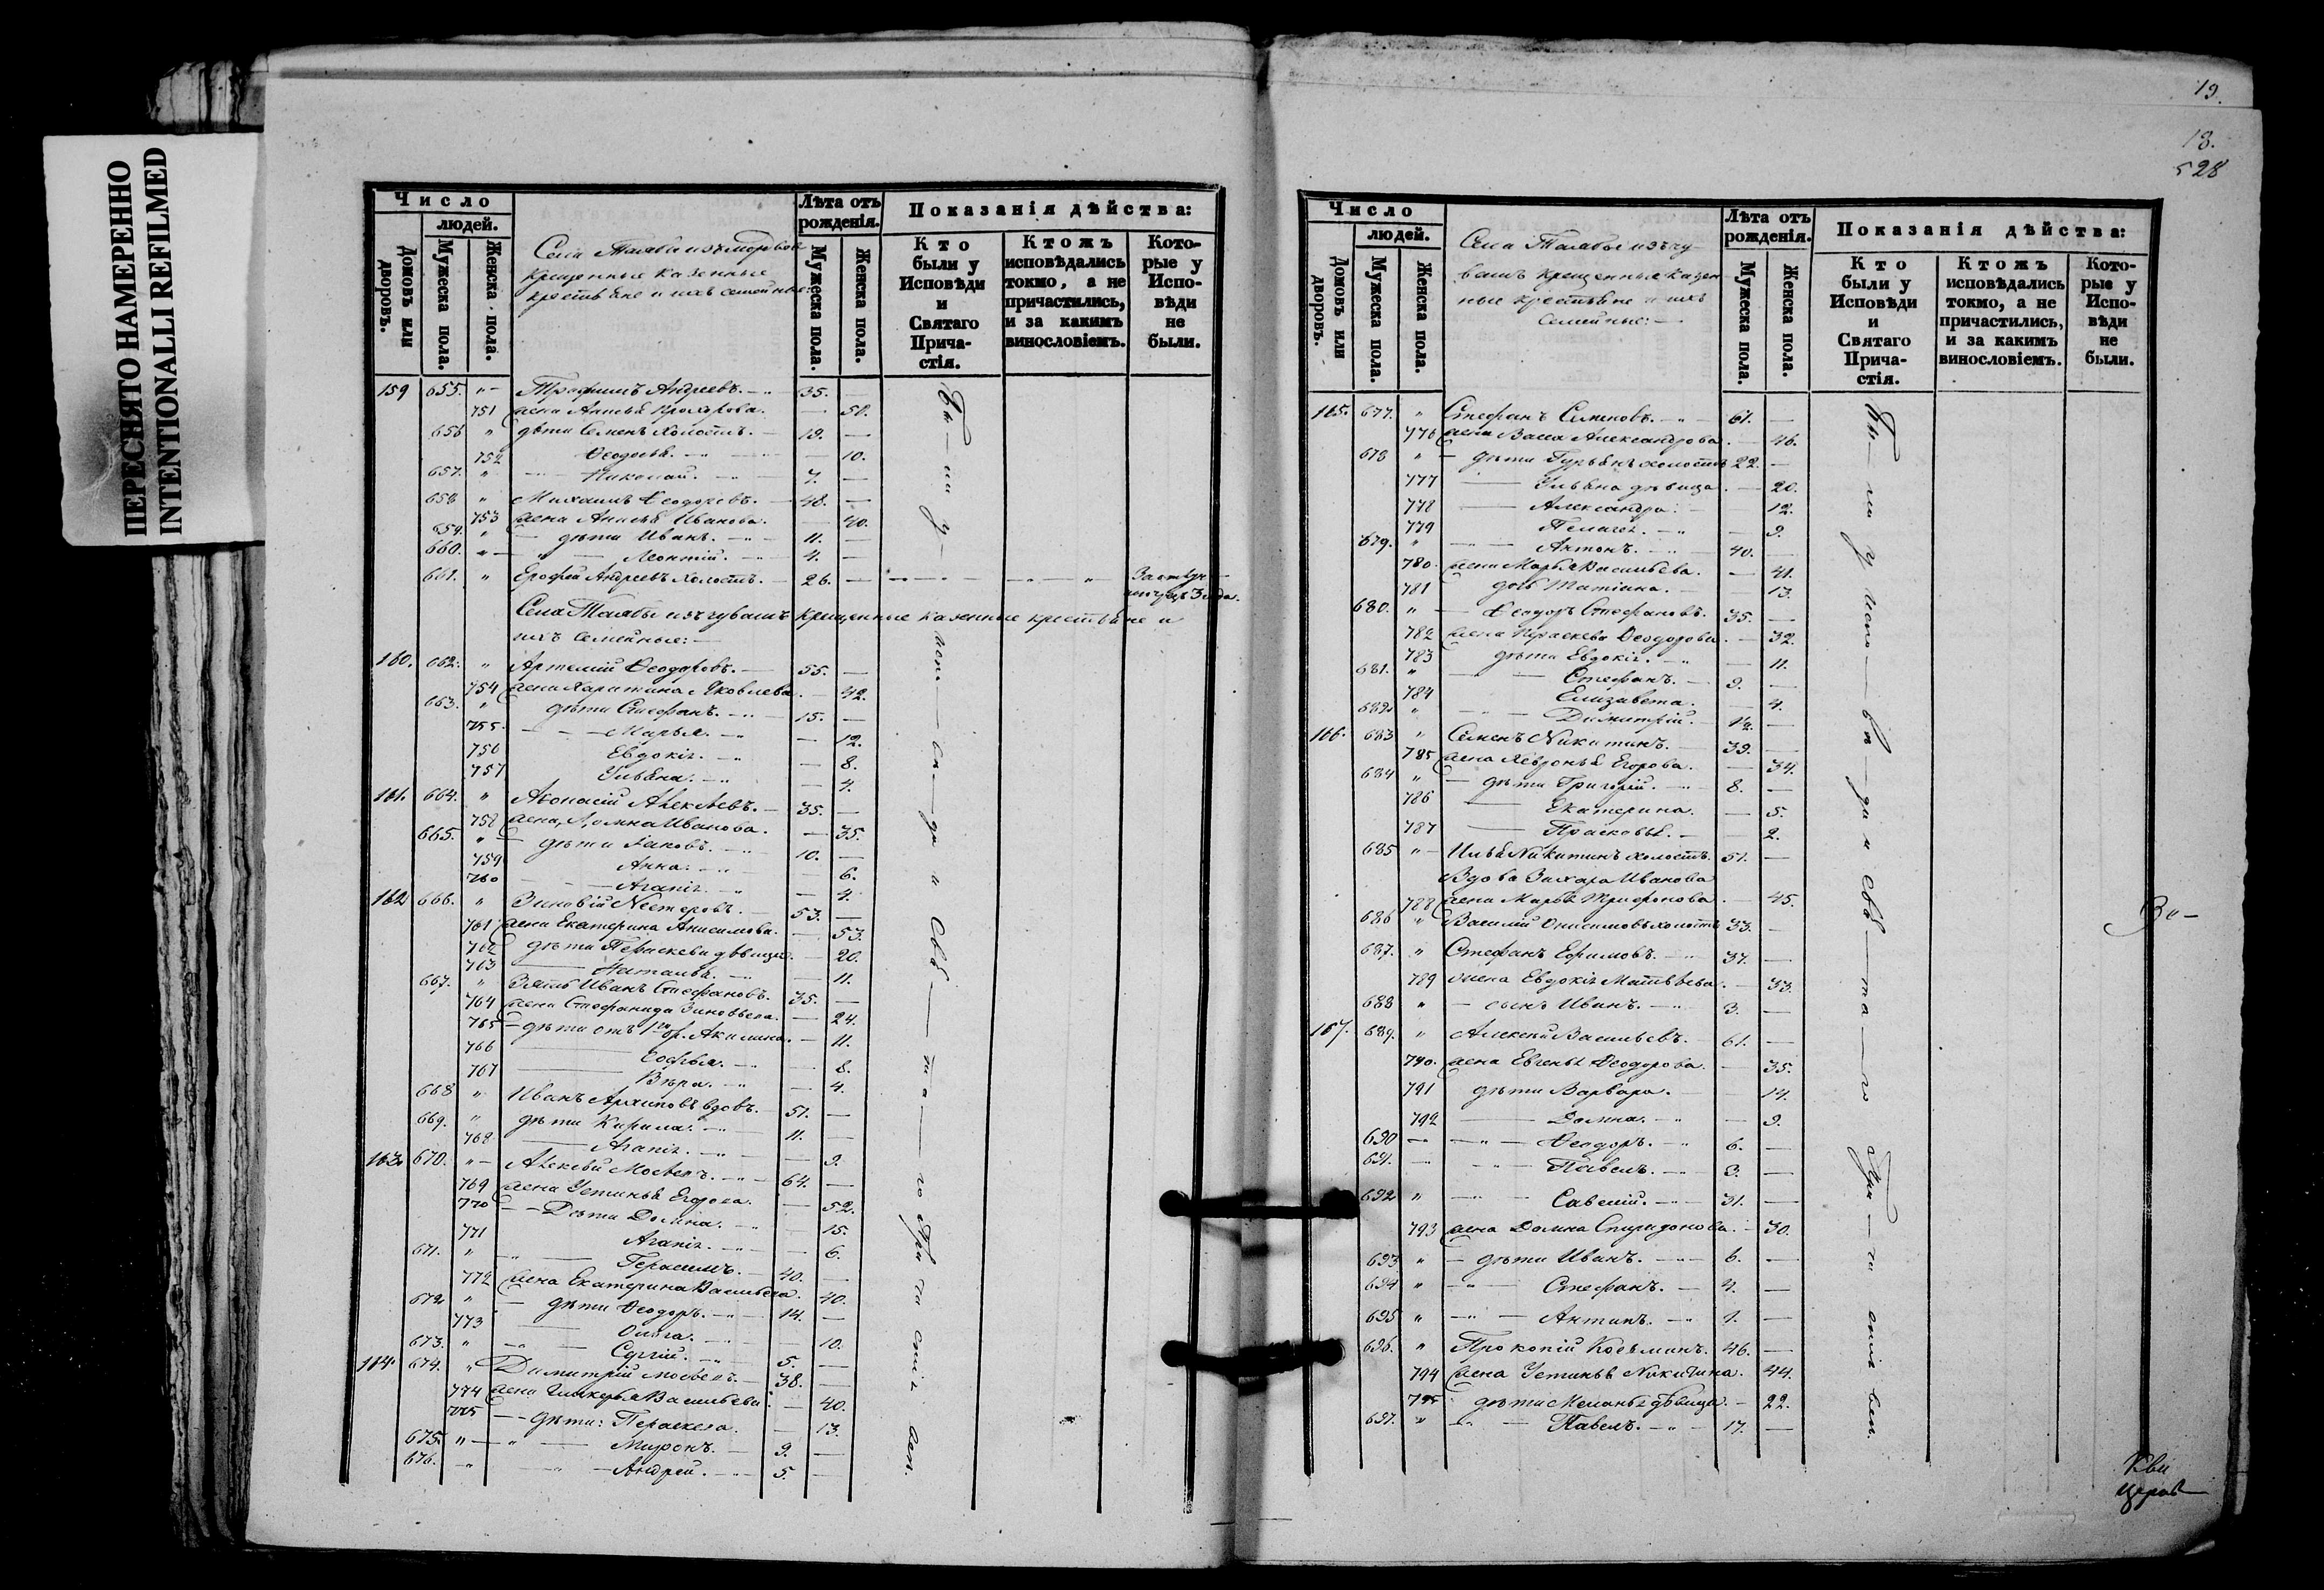 ПЕРЕСНЯТО НАМЕРЕННО
INTENTIONALLI REFILMED
Число
людей.
Домовъ или дворовъ.
Мужеска пола.
Женска пола.
Села Талабы изъ мордвовъ
крещенные казенные
крестьяне и ихъ семейные:
Лѣта отъ рожденія.
Мужеска пола.
Женска пола.
Показанія дѣйства:
Кто были у Исповѣди и Святаго Прича-стія.
Ктожъ исповѣдались токмо, а не причастились, и за какимъ винословіемъ.
Кото-рые у Испо-вѣди не были.
159 655. " Трофимъ Андреевъ. 35. —
751 жена Анисья Прохорова. — 50.
656 " дѣти Семенъ холостъ. 19. —
752 Ѳеодосья. — 10.
657. " Николай. 7. —
658 " Михаилъ Ѳеодоровъ. 48. —
753 жена Анисья Иванова. — 40.
659. " дѣти Иванъ. 11. —
660. " Леонтій. 4. —
661. " Ерофей Андреевъ холостъ. 26. —
Села Талабы изъ чувашъ крещенные казенные крестьяне и
ихъ семейные: —
160. 662. " Артемій Ѳеодоровъ. 55. —
754 жена Харитина Яковлева. — 42.
663. " дѣти Стефанъ. 15. —
755. Марья. — 12.
756 Евдокія. — 8.
757 Ульяна. — 4.
161. 664. " Аѳонасій Алексѣевъ. 35. —
758 жена Домна Иванова. — 35.
665. " дѣти Іаковъ. 10. —
759 Анна. — 6.
760 Агапія. — 4.
162 666. " Зиновій Нестеровъ. 53. —
761 жена Екатерина Анисимова. — 53.
762 дѣти Параскева дѣвица. — 20.
763 Наталья. — 11.
667. " Зять Иванъ Стефановъ. 35. —
764 жена Стефанида Зиновьева. — 24.
765 дѣти отъ 1го бр. Акилина. — 11.
766 Софья. — 8.
767 Вѣра. — 4.
668 " Иванъ Архиповъ вдовъ. 51. —
669. " дѣти Кирила. 11. —
768 Агапія. — 9.
163. 670. " Алексѣй Мосѣевъ. 64. —
769 жена Устинья Егорова. — 52.
770 Дѣти Домна. — 15.
771 Агапія. — 6.
671. " Герасимъ. 40. —
772 жена Екатерина Васильева. — 40.
672 " дѣти Ѳеодоръ. 14. —
773 Ольга. — 10.
673. " Сергій. 5. —
164. 674. " Димитрій Мосѣевъ. 38. —
774 жена Гликерья Васильева. — 40.
775 дѣти: Параскева. — 13.
675. " Миронъ. 9. —
676. " Андрей. 5. —
19.
18.
528
Число
людей.
Домовъ или дворовъ.
Мужеска пола.
Женска пола.
Села Талабы изъ чу-
вашъ крещенные казен
ные крестьяне и ихъ
семейные: —
Лѣта отъ рожденія.
Мужеска пола.
Женска пола.
Показанія дѣйства:
Кто были у Исповѣди и Святаго Прича-стія.
Ктожъ исповѣдались токмо, а не причастились, и за какимъ винословіемъ.
Кото-рые у Испо-вѣди не были.
165. 677. " Стефанъ Семеновъ. 61. —
776 жена Васса Александрова. — 46.
678 " дѣти Гурьянъ холостъ 22. —
777 Ульяна дѣвица. — 20.
778 Александра. — 12.
779 Пелагея. — 9.
679. " Антонъ. 40. —
780 жена Марья Васильева. — 41.
781 дочь Татіана. — 13.
680. " Ѳеодоръ Стефановъ. 35. —
782 жена Параскева Ѳеодорова. — 32.
783 дѣти Евдокія. — 11.
681. " Стефанъ. 9. —
784 Елизавета. — 4.
682 " Димитрій. 1/2. —
166. 683 " Семенъ Никитинъ. 39. —
785 жена Хевронья Егорова. — 34.
684 " дѣти Григорій. 8. —
786 Екатерина. — 5.
787 Прасковья. — 2.
685 " Илья Никитинъ холостъ. 51. —
Вдова Захара Иванова
788 жена Марья Трифонова. — 45.
686 " Василій Онисимовъ холостъ 33. —
687. " Стефанъ Ефимовъ. 37. —
789 жена Евдокія Матвѣева. — 33.
688 " сынъ Иванъ. 3. —
167. 689. " Алексій Васильевъ. 61. —
790. жена Евгенья Ѳеодорова. — 35.
791 дѣти Варвара. — 14.
792 Домна. — 9.
690 — Ѳеодоръ. 6. —
691. — Павелъ. 3. —
692 " Савелій. 31. —
793 жена Домна Спиридонова. — 30.
693 " дѣти Иванъ. 6. —
694 " Стефанъ. 4. —
695 " Антипъ. 1. —
696. " Прокопій Козьминъ. 46. —
794 жена Устинья Никитина. 44.
795 дѣти Меланья дѣвица. — 22.
697. " Павелъ. 17. —